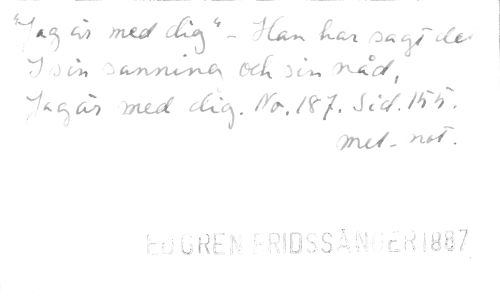 "Jag är med dig" - Han har sagt de
I sin sanning och sin nåd,
Jag är med dig. No. 187. Sid. 155.
mel. not.
EDGREN FRIDSSÅNGER 1887